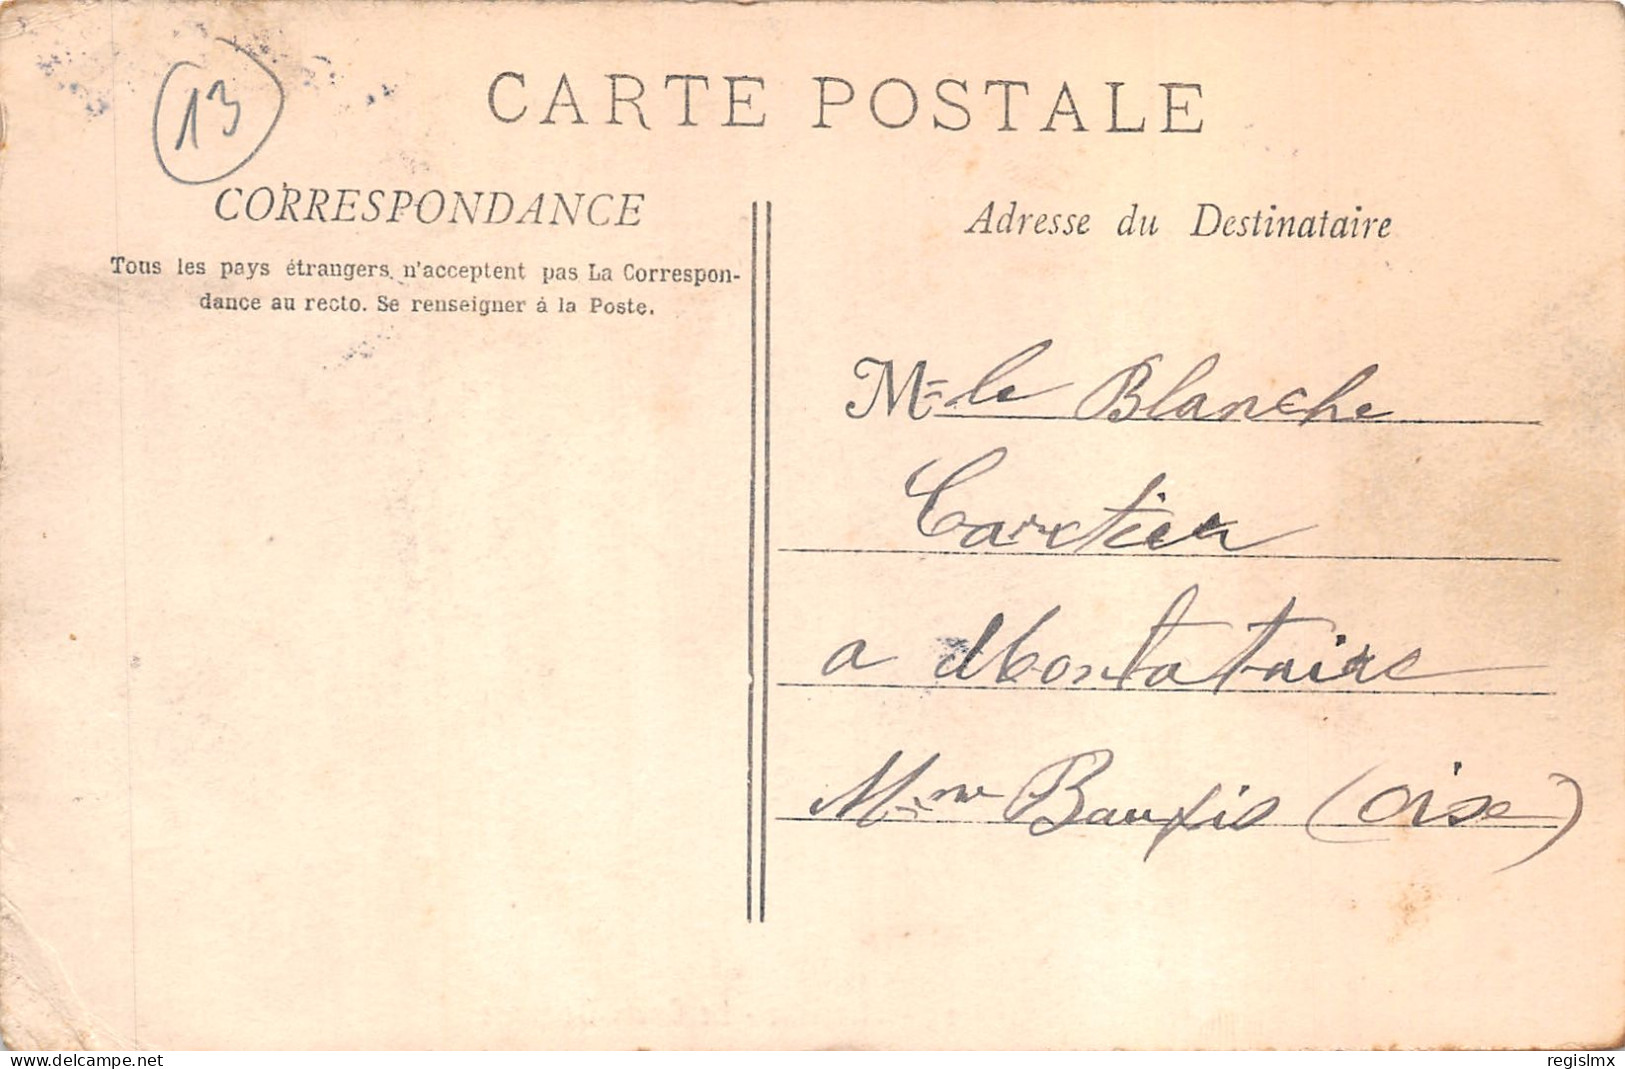 13
CARTE POSTALE
CORRESPONDANCE
Tous les pays étrangers n'acceptent pas La Correspon-
dance au recto. Se renseigner à la Poste.
Adresse du Destinataire
Mlle Blanche
Cartier
a Montataire
Mon Bauxis (Oise)
delcampe.net
regislmx